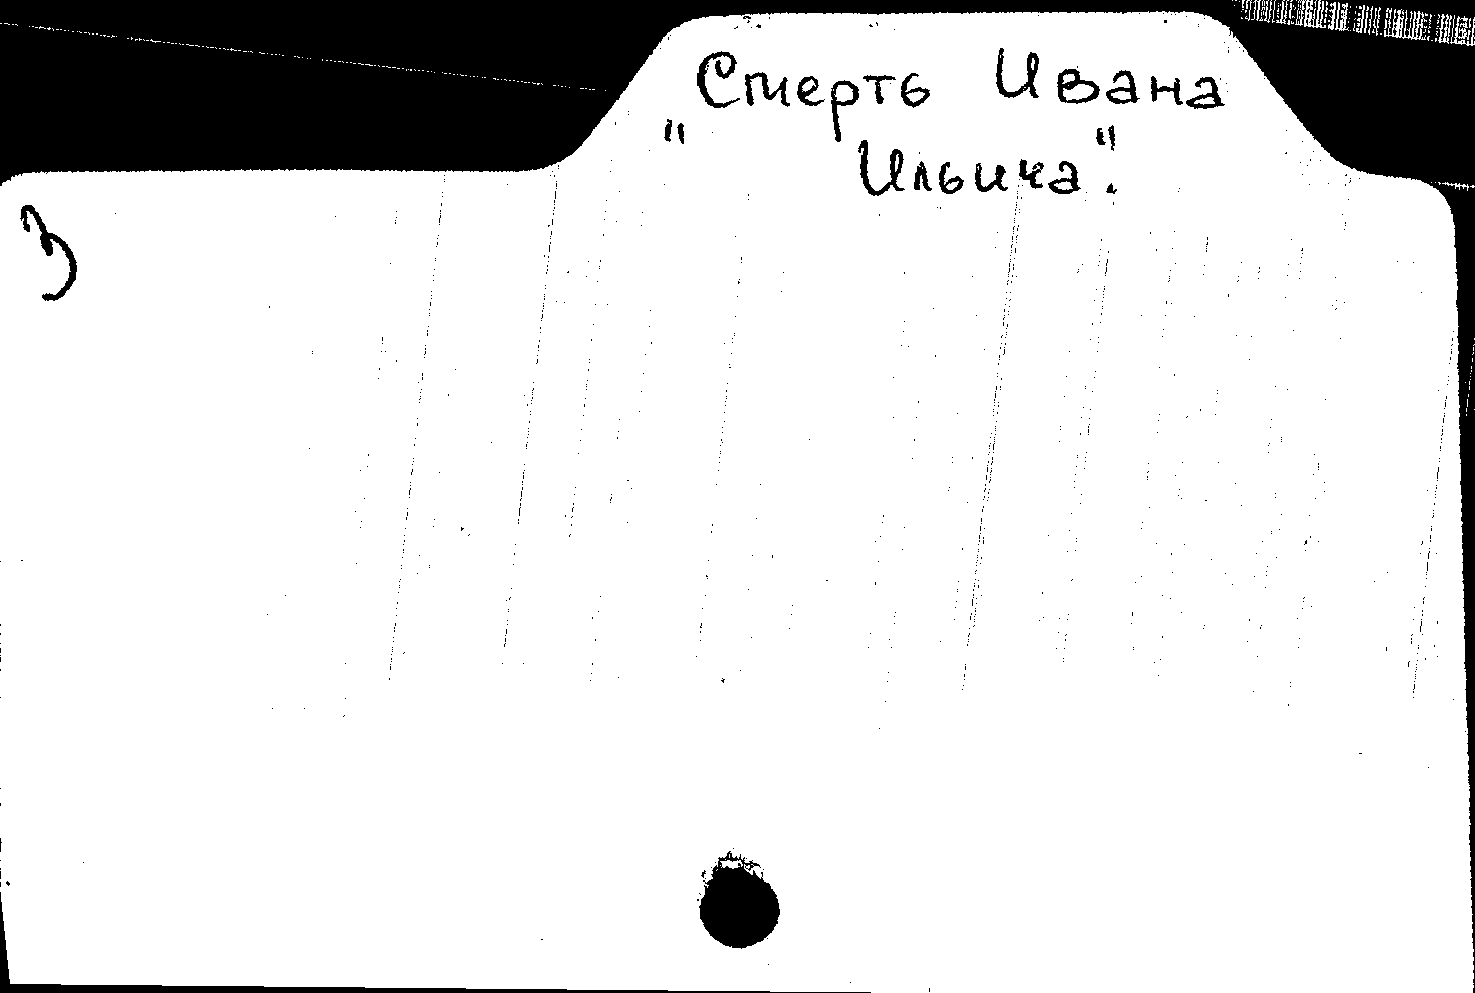 "Смерть Ивана
Ильича".
3